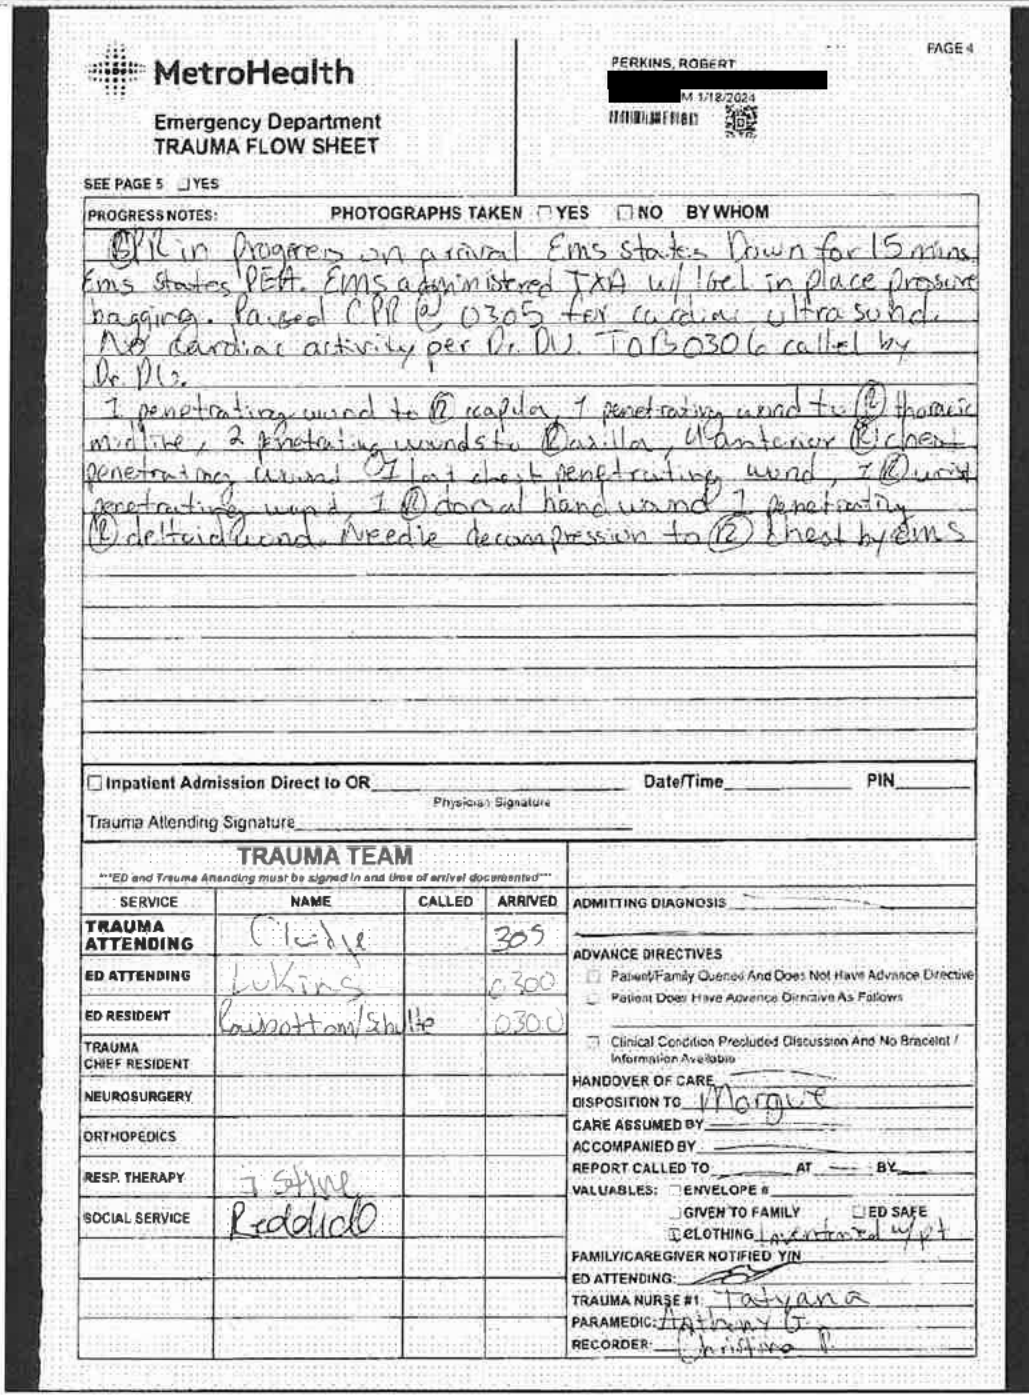 PAGE 4
MetroHealth
PERKINS, ROBERT
M 1/18/2024
Emergency Department
TRAUMA FLOW SHEET
SEE PAGE 5 YES
PROGRESS NOTES: PHOTOGRAPHS TAKEN YES NO BY WHOM
CPR in Progress on arrival Ems states Down for 15 mins
Ems states PEA. EMS administered TXA w/ Igel in place pressure
bagging. Paused CPR @ 0305 for cardiac ultrasound.
No cardiac activity per Dr. DU. TOD 0306 called by
Dr. DU.
1 penetrating wound to R scapula, 1 penetrating wound to R thoracic
midline, 2 penetrating wounds to R axilla, 4 anterior R chest
penetrating wound 1 lat chest penetrating wound, 1 R wrist
penetrating wound, 1 R dorsal hand wound 1 penetrating
R deltoid wound. Needle decompression to R chest by ems
Inpatient Admission Direct to OR Date/Time PIN
Physician Signature
Trauma Attending Signature
TRAUMA TEAM
***ED and Trauma Attending must be signed in and time of arrival documented***
SERVICE NAME CALLED ARRIVED
TRAUMA ATTENDING 305
ED ATTENDING Lukins 0300
ED RESIDENT 0300
TRAUMA CHIEF RESIDENT
NEUROSURGERY
ORTHOPEDICS
RESP. THERAPY
SOCIAL SERVICE
ADMITTING DIAGNOSIS
ADVANCE DIRECTIVES
Patient/Family Queried And Does Not Have Advance Directive
Patient Does Have Advance Directive As Follows
Clinical Condition Precluded Discussion And No Bracelet /
Information Available
HANDOVER OF CARE
DISPOSITION TO Morgue
CARE ASSUMED BY
ACCOMPANIED BY
REPORT CALLED TO AT BY
VALUABLES: ENVELOPE #
GIVEN TO FAMILY ED SAFE
CLOTHING inventoried w/ pt
FAMILY/CAREGIVER NOTIFIED Y/N
ED ATTENDING:
TRAUMA NURSE #1: Tatyana
PARAMEDIC: Anthony G.
RECORDER: Christina P.